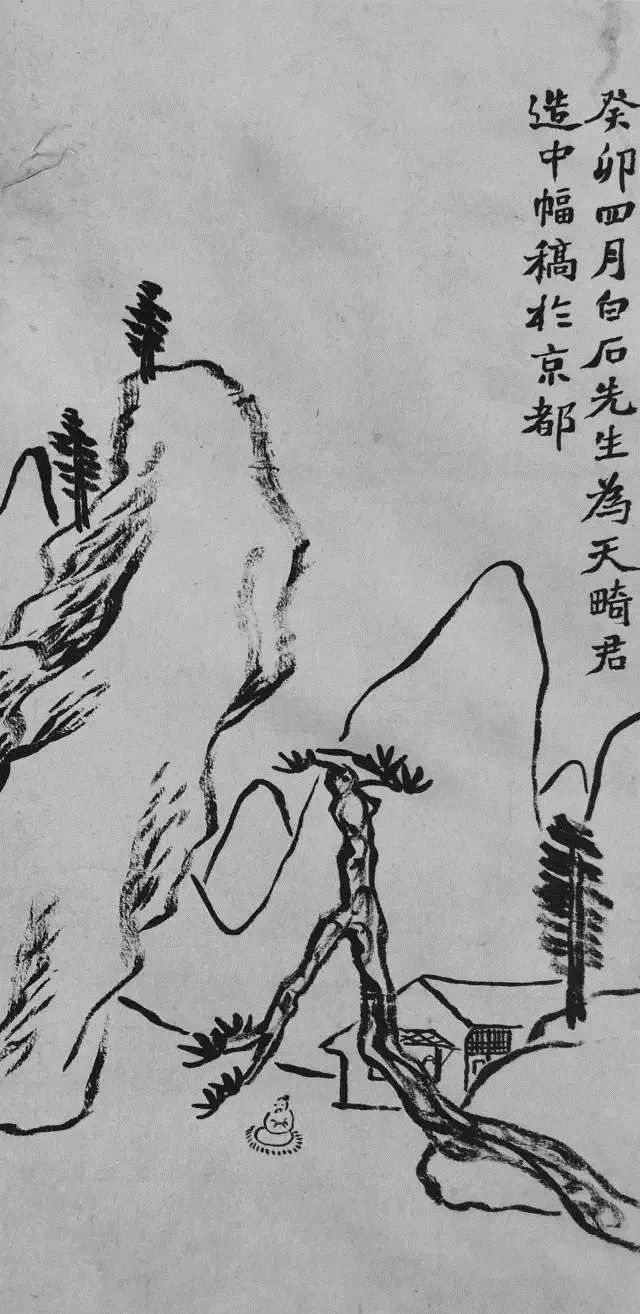 癸卯四月白石先生為天畸君
造中幅稿於京都